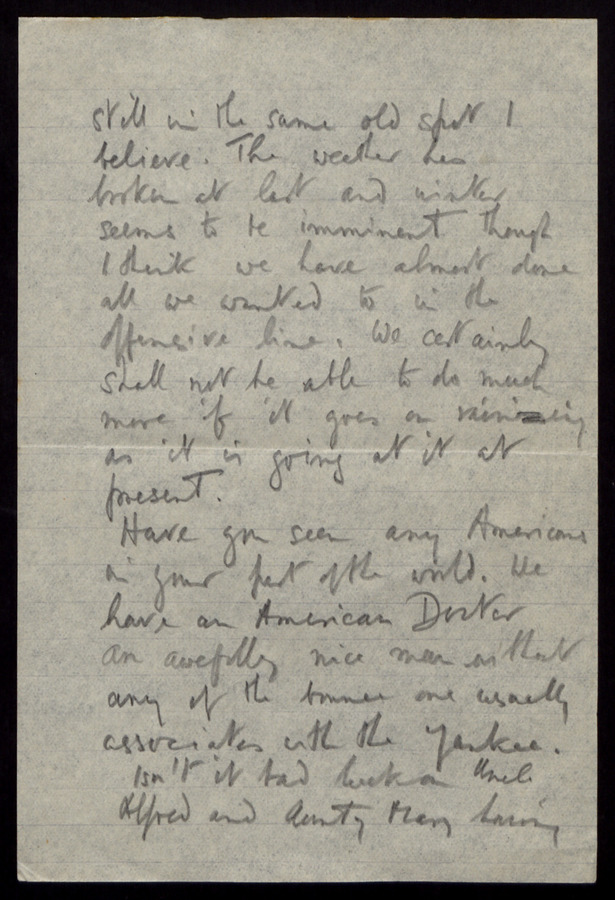 still in the same old spot I
believe. The weather has
broken at last and winter
seems to be imminent though
I think we have almost done
all we wanted to in the
offensive line. We certainly
shall not be able to do much
more if it goes on raining
as it is going at it at
present.
Have you seen any Americans
in your part of the world. We
have an American Doctor
an awefully nice man without
any of the bounce one usually
associates with the Yankee.
Isn't it bad luck on Uncle
Alfred and Aunty Mary having